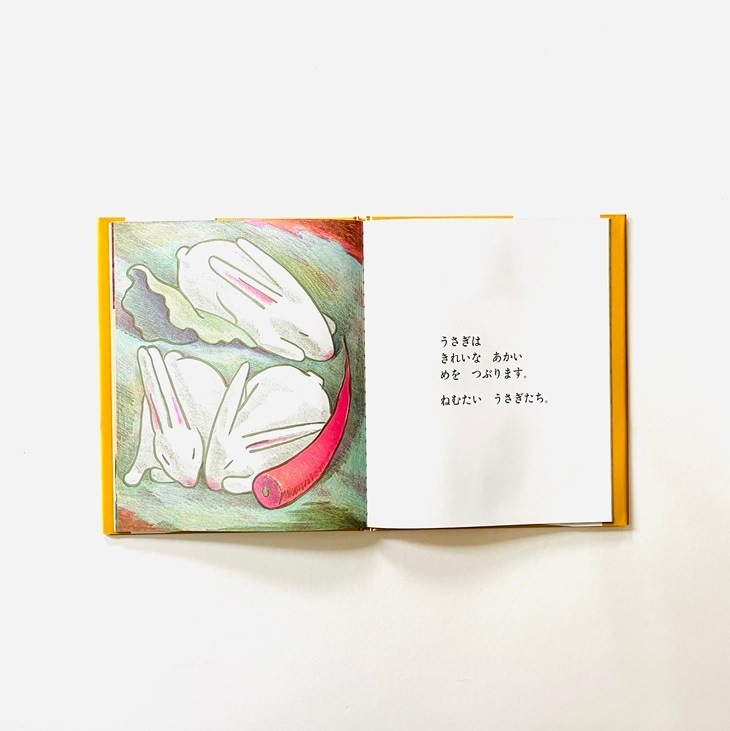 うさぎは
きれいな　あかい
めを　つぶります。
ねむたい　うさぎたち。